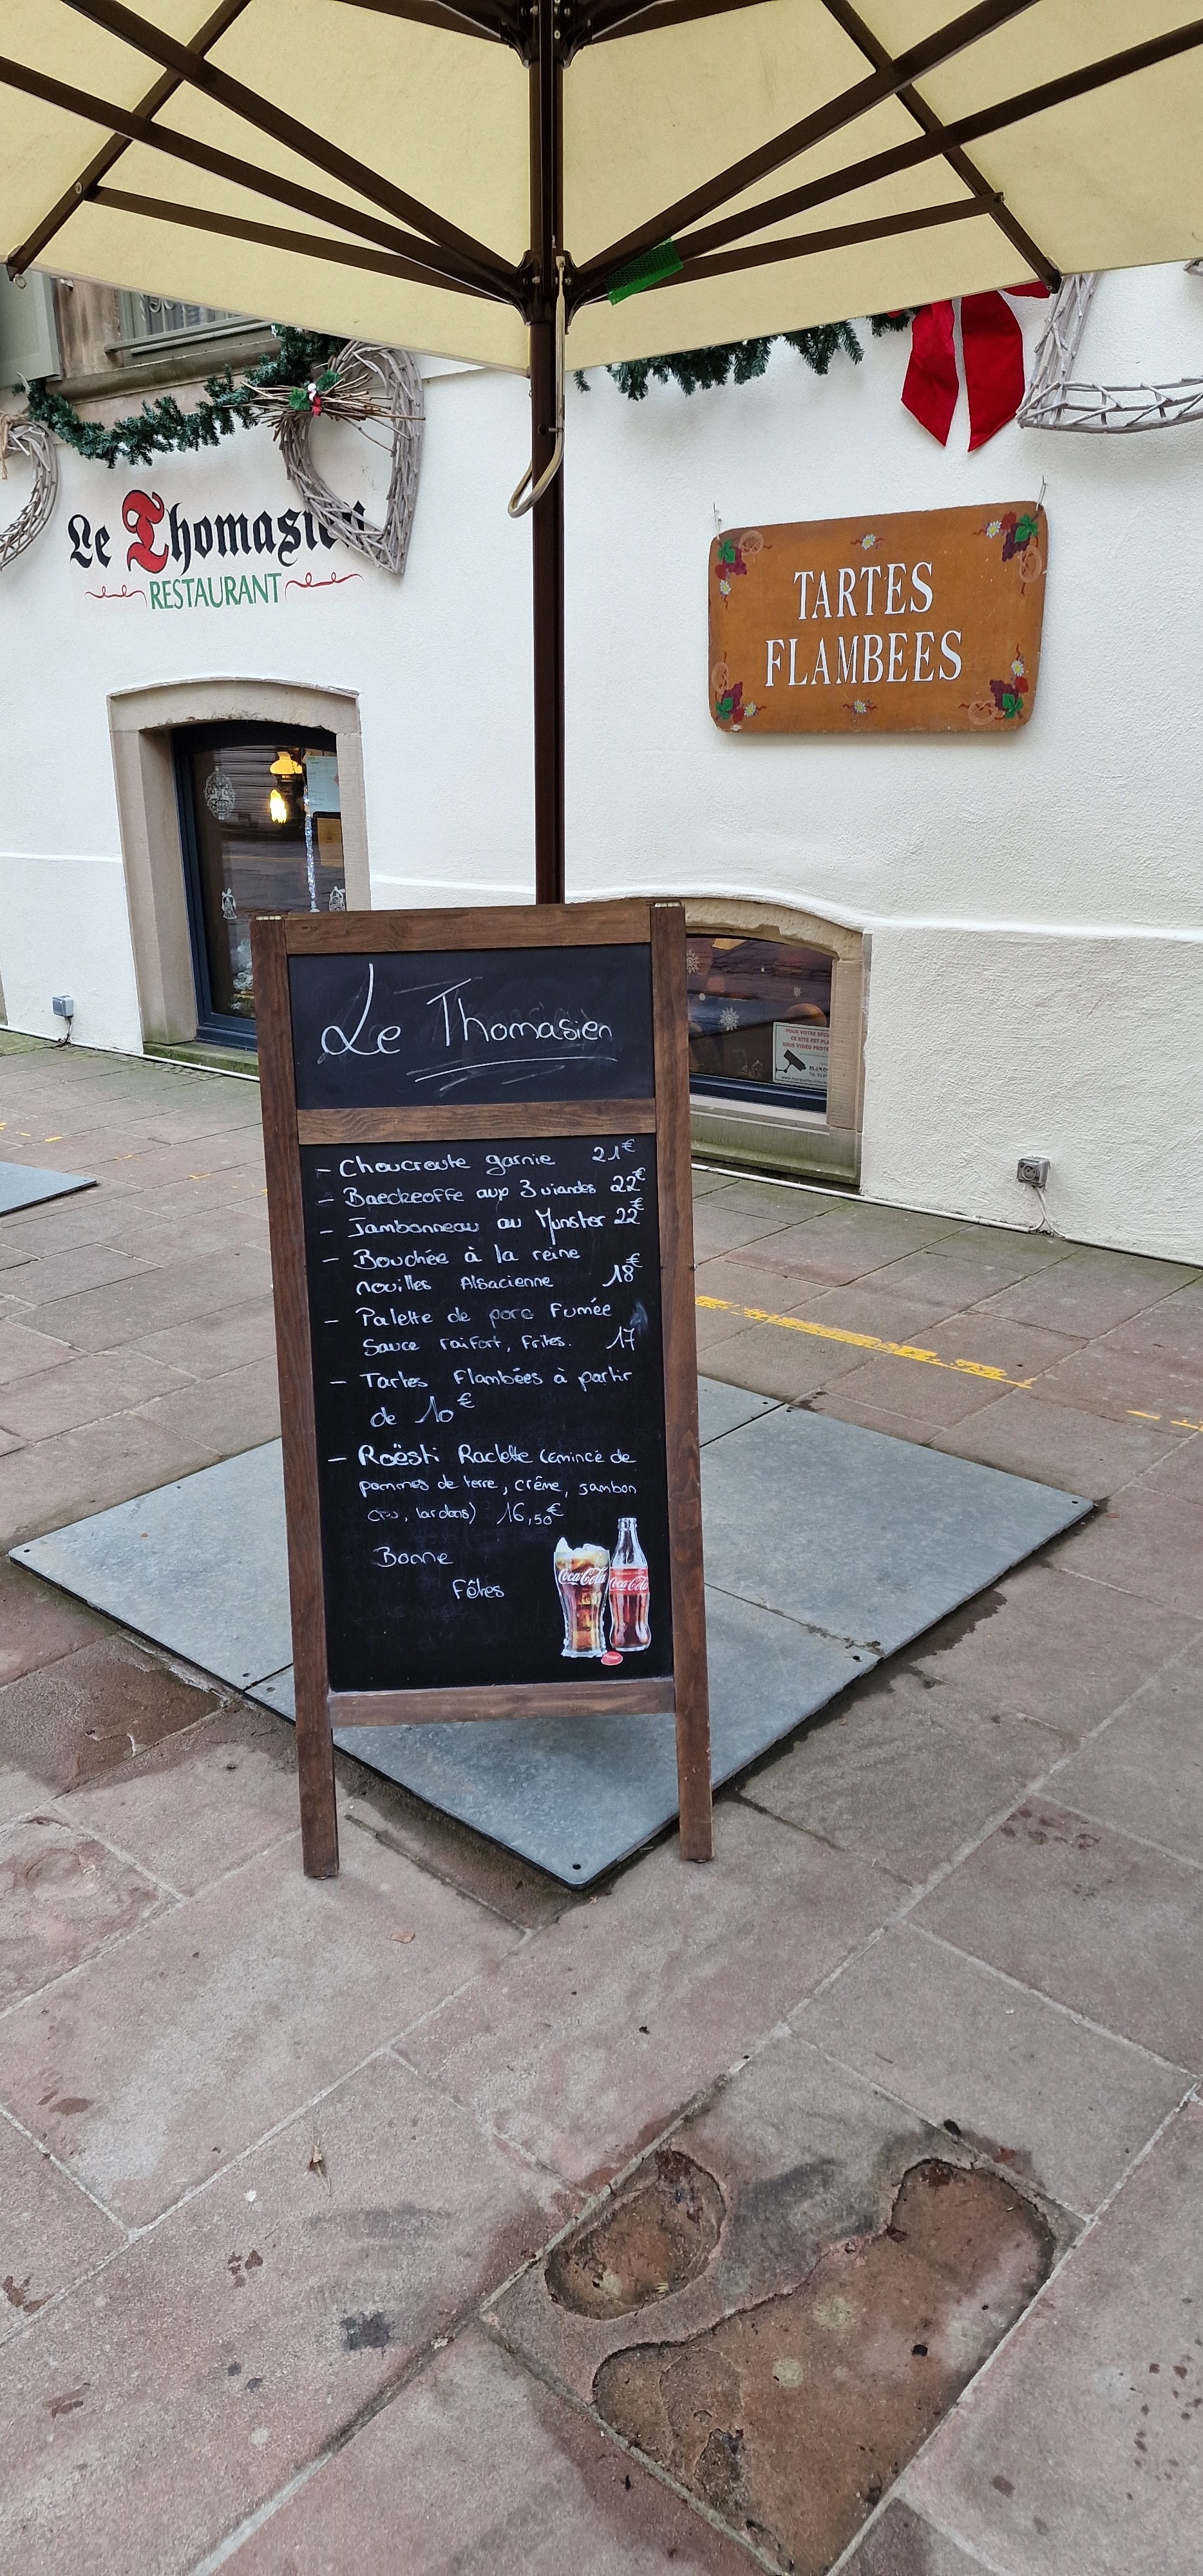 Le Thomasien
RESTAURANT
TARTES
FLAMBEES
POUR VOTRE SÉCU
CE SITE EST PLA
SOUS VIDÉO PROTE
Le Thomasien
- Choucroute garnie 21€
- Baeckeoffe aux 3 viandes 22€
- Jambonneau au Munster 22€
- Bouchée à la reine
nouilles Alsacienne 18€
- Palette de porc Fumée
Sauce raifort, Frites. 17
- Tartes Flambées à partir
de 10€
- Roësti Raclette (émincé de
pommes de terre, crême, jambon
cru, lardons) 16,50€
Bonne
Fêtes
Coca-Cola
Coca-Cola